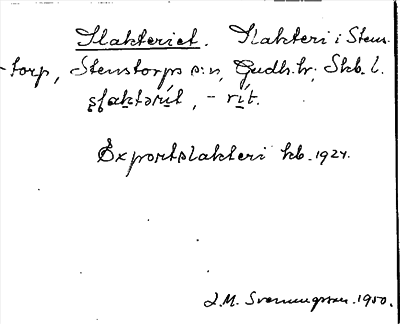 Slakteriet. Slakteri i Stens-
torp, Stenstorps s:n, Gudh. hr, Skb. l.
ṣḷaktərít, - rít.
Exportslakteri kb. 1924.
J.M. Svenungsson. 1950.